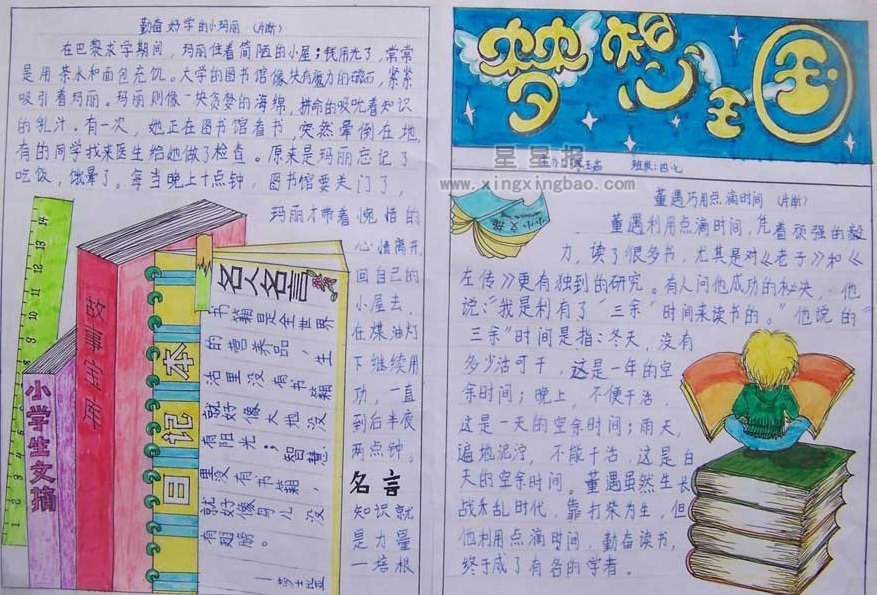 勤奋好学的小玛丽（片断）
在巴黎求学期间，玛丽住着简陋的小屋；钱用光了，常常
是用茶水和面包充饥。大学的图书馆像块有魔力的磁石，紧紧
吸引着玛丽。玛丽则像一块贪婪的海绵，拼命的吸吮着知识
的乳汁。有一次，她正在图书馆看书，突然晕倒在地，
有的同学找来医生给她做了检查。原来是玛丽忘记了
吃饭，饿晕了。每当晚上十点钟，图书馆要关门了，
玛丽才带着惋惜的
心情离开，
回自己的
小屋去，
在煤油灯
下继续用
功，一直
到后半夜
两点钟。
名言
知识就
是力量
—培根
1 2 3 4 5 6 7 8 9 10 11 12 13 14
小学生文摘
故事宝库
日记本
名人名言
书籍是全世界
的营养品，生
活里没有书籍，
就好像大地没
有阳光；智慧
里没有书籍，
就好像鸟儿没
有翅膀。
—莎士亚
梦想王国
班级：四、七
星星报
www.xingxingbao.com
小小文摘
董遇巧用点滴时间（片断）
董遇利用点滴时间，凭着顽强的毅
力，读了很多书，尤其是对《老子》和《
左传》更有独到的研究。有人问他成功的秘决，他
说：“我是利有了“三余”时间来读书的。”他说的“
三余”时间是指：冬天，没有
多少活可干，这是一年的空
余时间；晚上，不便干活，
这是一天的空余时间；雨天，
遍地泥泞，不能干活，这是白
天的空余时间。董遇虽然生长
战禾乱时代，靠打柴为生，但
他利用点滴时间，勤奋读书，
终于成了有名的学者。